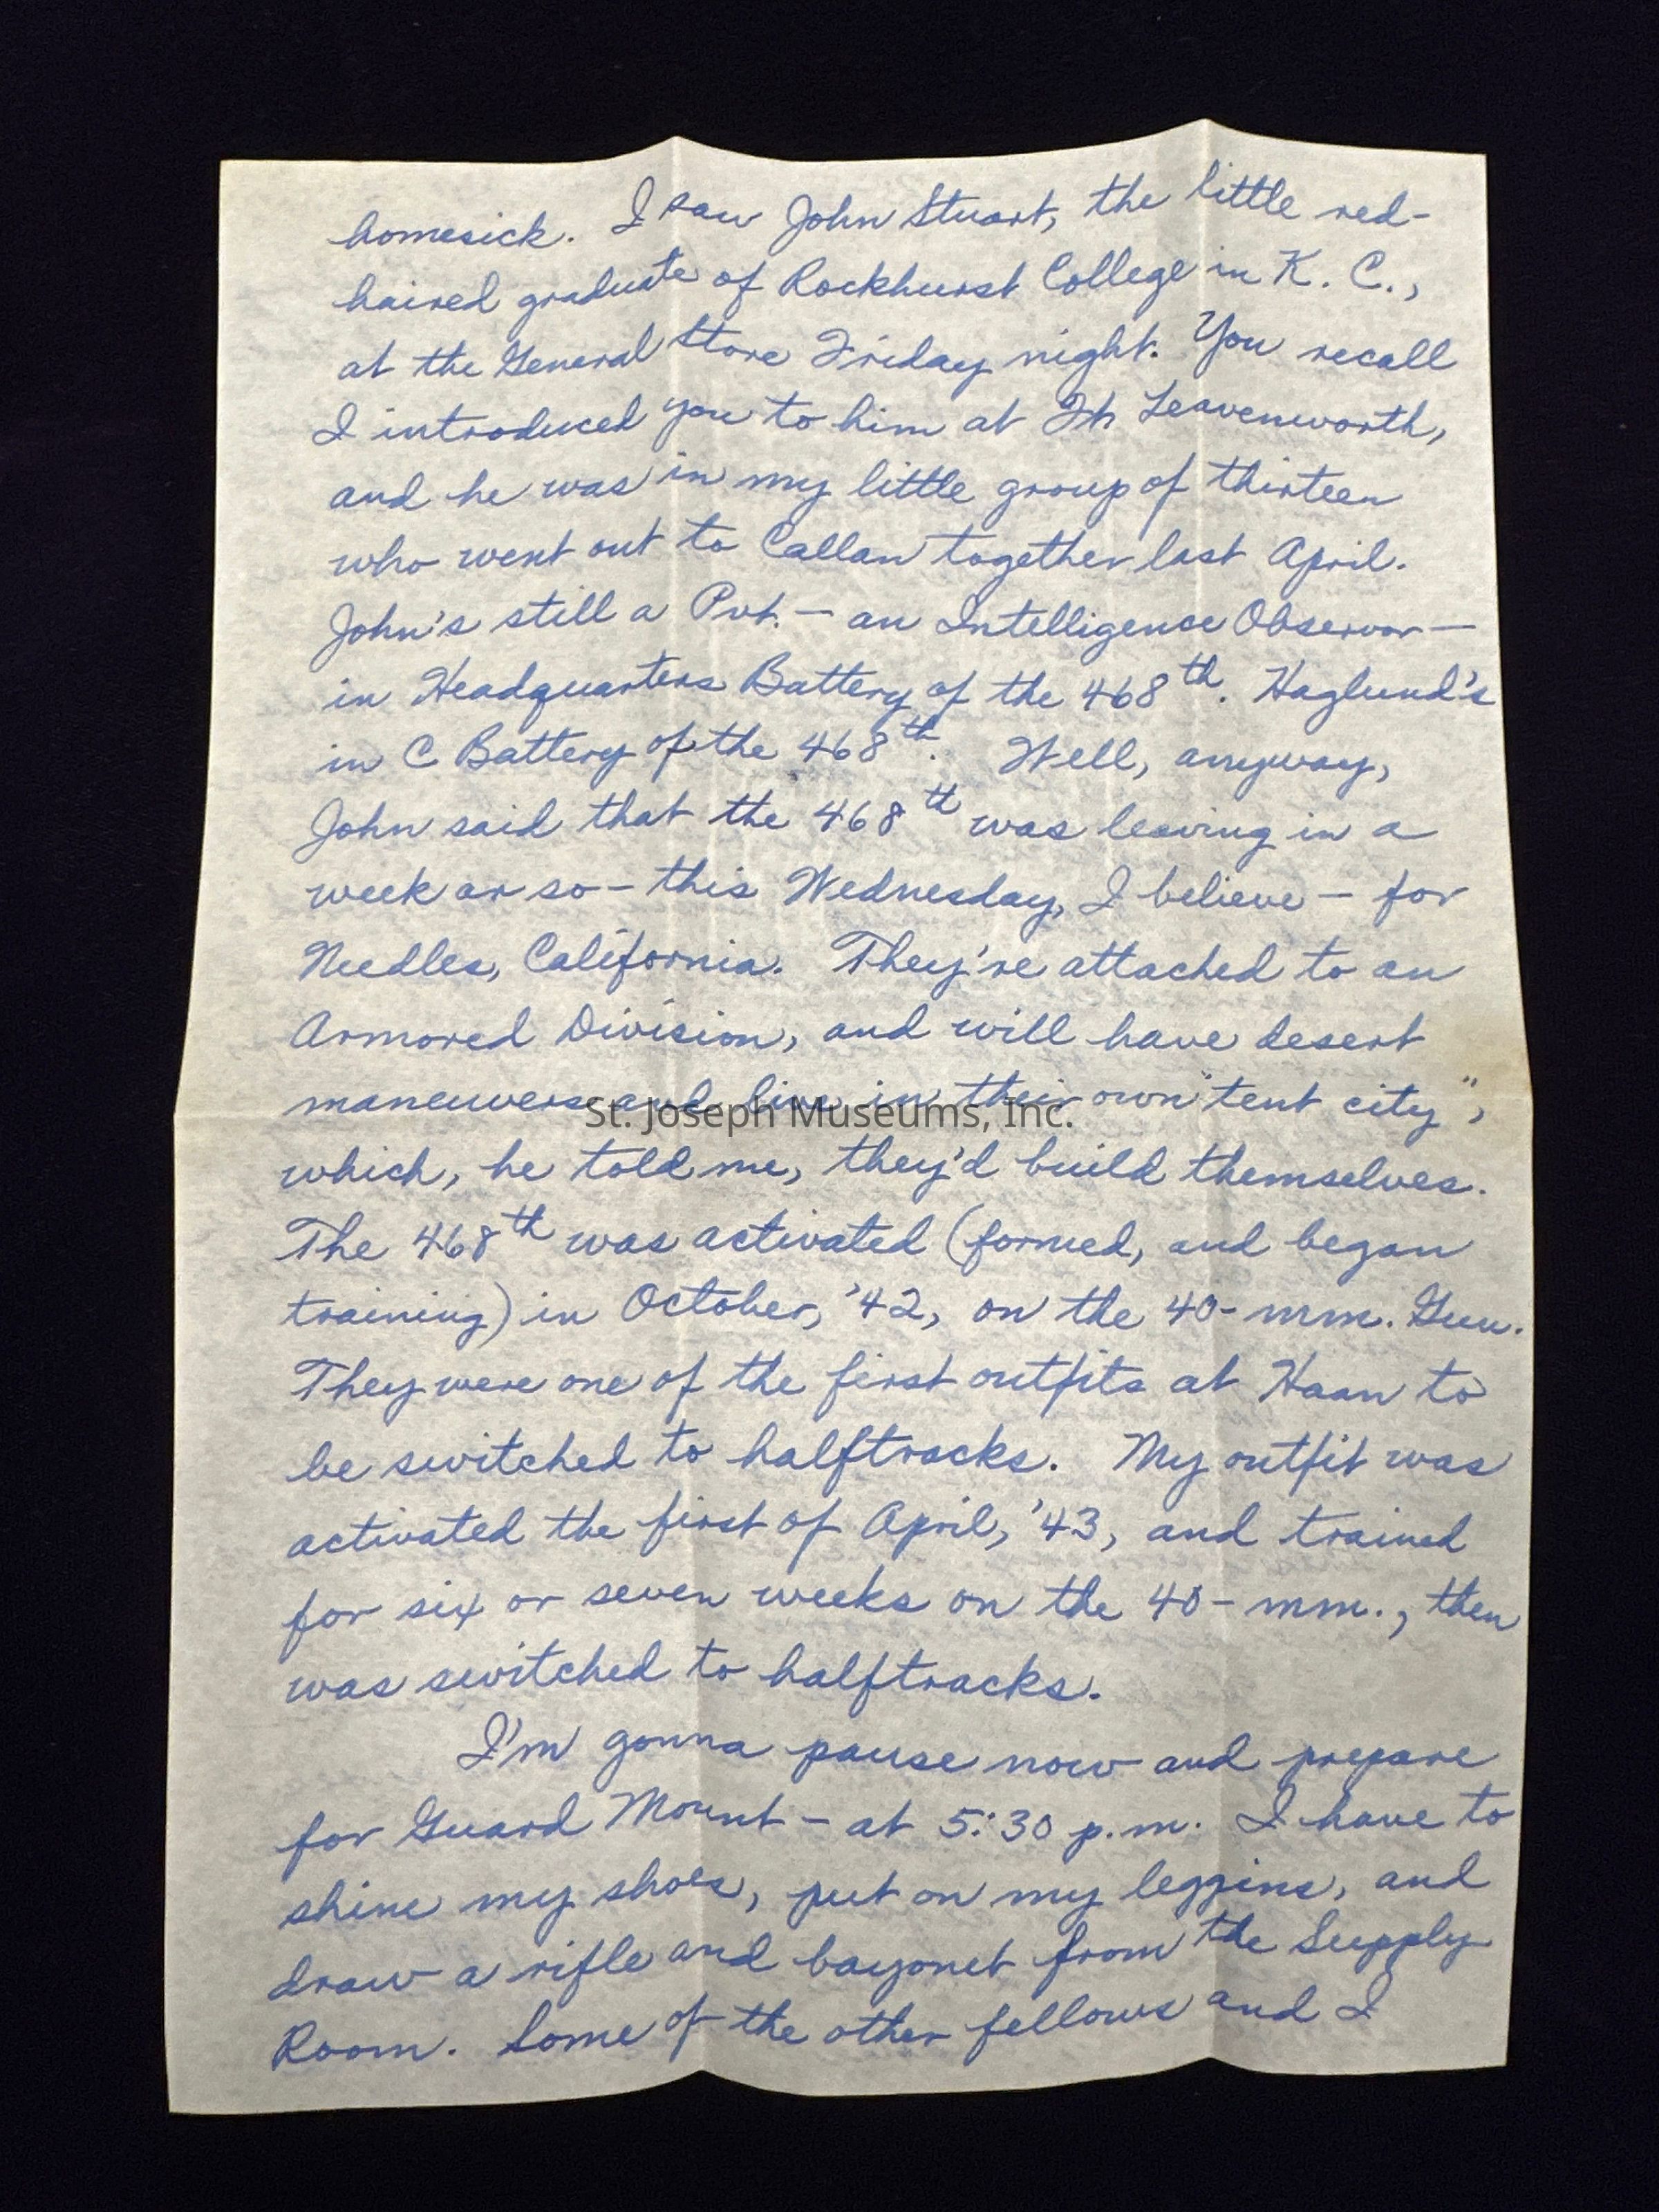 homesick. I saw John Stuart, the little red-
haired graduate of Rockhurst College in K. C.,
at the General Store Friday night. You recall
I introduced you to him at Ft. Leavenworth,
and he was in my little group of thirteen
who went out to Callan together last April.
John's still a Pvt. — an Intelligence Observor —
in Headquarters Battery of the 468th. Haglund's
in C Battery of the 468th. Well, anyway,
John said that the 468th was leaving in a
week or so — this Wednesday, I believe — for
Needles, California. They're attached to an
Armored Division, and will have desert
maneuvers and live in their own "tent city",
St. Joseph Museums, Inc.
which, he told me, they'd build themselves.
The 468th was activated (formed, and began
training) in October, '42, on the 40-mm. Gun.
They were one of the first outfits at Haan to
be switched to halftracks. My outfit was
activated the first of April, '43, and trained
for six or seven weeks on the 40-mm., then
was switched to halftracks.
I'm gonna pause now and prepare
for Guard Mount — at 5:30 p.m. I have to
shine my shoes, put on my leggins, and
draw a rifle and bayonet from the Supply
Room. Some of the other fellows and I